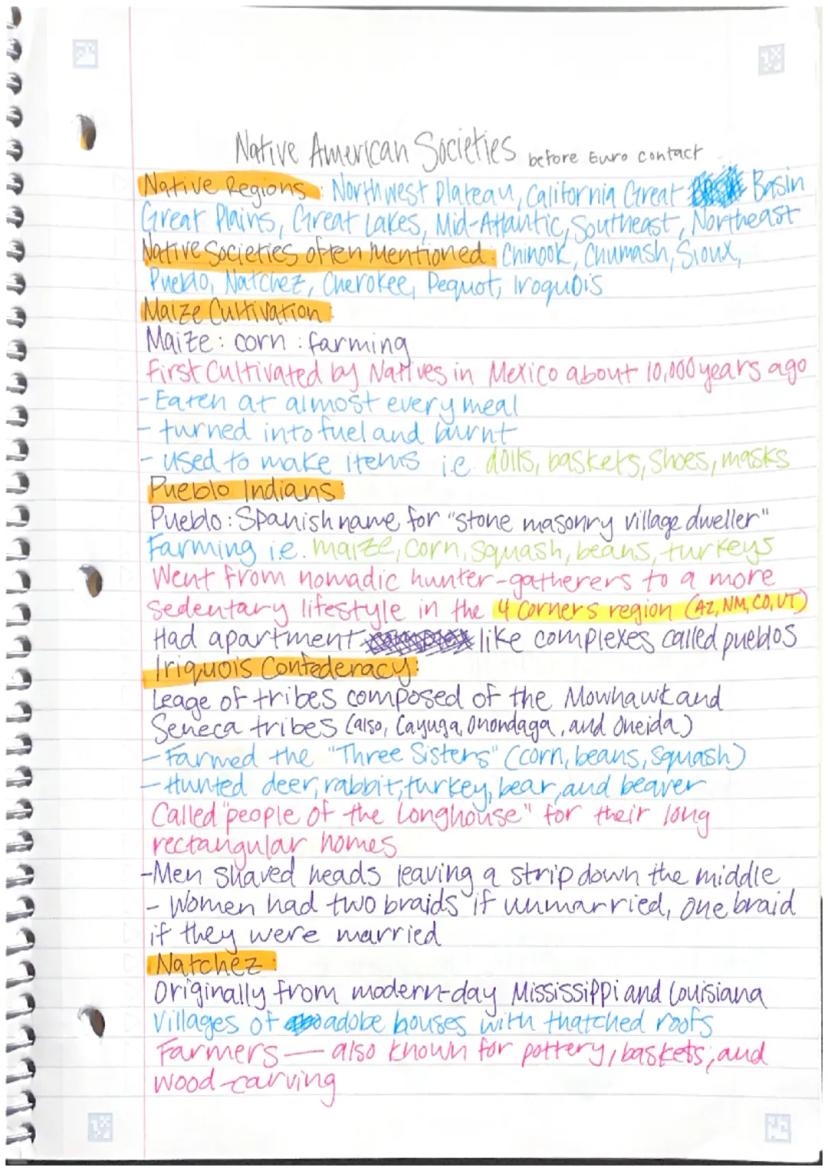 Native American Societies before Euro contact
Native Regions: Northwest Plateau, California Great Basin
Great Plains, Great Lakes, Mid-Atlantic, Southeast, Northeast
Native Societies often Mentioned: Chinook, Chumash, Sioux,
Pueblo, Natchez, Cherokee, Pequot, Iroquois
Maize Cultivation
Maize: corn: farming
First Cultivated by Natives in Mexico about 10,000 years ago
- Eaten at almost every meal
- turned into fuel and burnt
- used to make items i.e dolls, baskets, shoes, masks
Pueblo Indians:
Pueblo: Spanish name for "stone masonry village dweller"
Farming i.e. maize, corn, squash, beans, turkeys
Went from nomadic hunter-gatherers to a more
sedentary lifestyle in the 4 corners region (AZ, NM, CO, UT)
Had apartment like complexes called pueblos
Iriquois Confederacy:
Leage of tribes composed of the Mowhawk and
Seneca tribes (also, Cayuga, Onondaga, and Oneida)
- Farmed the "Three Sisters" (corn, beans, squash)
- Hunted deer, rabbit, turkey, bear, and beaver
Called "people of the longhouse" for their long
rectangular homes
- Men shaved heads leaving a strip down the middle
- Women had two braids if unmarried, one braid
if they were married
Natchez:
Originally from modern-day Mississippi and Louisiana
Villages of adobe houses with thatched roofs
Farmers — also known for pottery, baskets, and
wood-carving